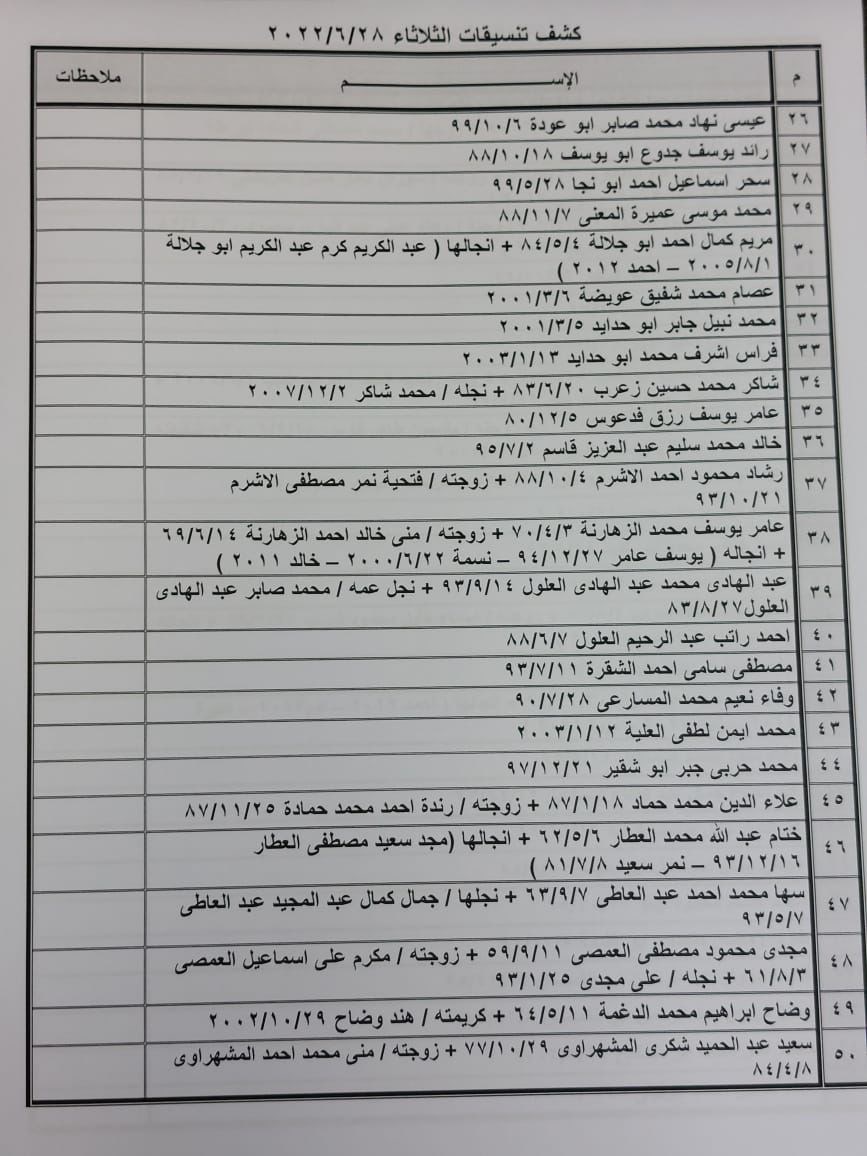 كشف تنسيقات الثلاثاء ٢٠٢٢/٦/٢٨
م الإســــم ملاحظات
٢٦ عيسى نهاد محمد صابر ابو عودة ٩٩/١٠/٦
٢٧ رائد يوسف جدوع ابو يوسف ٨٨/١٠/١٨
٢٨ سحر اسماعيل احمد ابو نجا ٩٩/٥/٢٨
٢٩ محمد موسى عميرة المغنى ٨٨/١١/٧
٣٠ مريم كمال احمد ابو جلالة ٨٤/٥/٤ + انجالها ( عبد الكريم كرم عبد الكريم ابو جلالة
٢٠٠٥/٨/١ – احمد ٢٠١٢ )
٣١ عصام محمد شفيق عويضة ٢٠٠١/٣/٦
٣٢ محمد نبيل جابر ابو حدايد ٢٠٠١/٣/٥
٣٣ فراس اشرف محمد ابو حدايد ٢٠٠٣/١/١٣
٣٤ شاكر محمد حسين زعرب ٨٣/٦/٢٠ + نجله / محمد شاكر ٢٠٠٧/١٢/٢
٣٥ عامر يوسف رزق فدعوس ٨٠/١٢/٥
٣٦ خالد محمد سليم عبد العزيز قاسم ٩٥/٧/٢
٣٧ رشاد محمود احمد الاشرم ٨٨/١٠/٤ + زوجته / فتحية نمر مصطفى الاشرم
٩٣/١٠/٢١
٣٨ عامر يوسف محمد الزهارنة ٧٠/٤/٣ + زوجته / منى خالد احمد الزهارنة ٦٩/٦/١٤
+ انجاله ( يوسف عامر ٩٤/١٢/٢٧ – نسمة ٢٠٠٠/٦/٢٢ – خالد ٢٠١١ )
٣٩ عبد الهادى محمد عبد الهادى العلول ٩٣/٩/١٤ + نجل عمه / محمد صابر عبد الهادى
العلول٨٣/٨/٢٧
٤٠ احمد راتب عبد الرحيم العلول ٨٨/٦/٧
٤١ مصطفى سامى احمد الشقرة ٩٣/٧/١١
٤٢ وفاء نعيم محمد المسارعى ٩٠/٧/٢٨
٤٣ محمد ايمن لطفى العلية ٢٠٠٣/١/١٢
٤٤ محمد حربى جبر ابو شقير ٩٧/١٢/٢١
٤٥ علاء الدين محمد حماد ٨٧/١/١٨ + زوجته / رندة احمد محمد حمادة ٨٧/١١/٢٥
٤٦ ختام عبد الله محمد العطار ٦٢/٥/٦ + انجالها (مجد سعيد مصطفى العطار
٩٣/١٢/١٦ – نمر سعيد ٨١/٧/٨ )
٤٧ سها محمد احمد عبد العاطى ٦٣/٩/٧ + نجلها / جمال كمال عبد المجيد عبد العاطى
٩٣/٥/٧
٤٨ مجدى محمود مصطفى العمصى ٥٩/٩/١١ + زوجته / مكرم على اسماعيل العمصى
٦١/٨/٣ + نجله / على مجدى ٩٣/١/٢٥
٤٩ وضاح ابراهيم محمد الدغمة ٦٤/٥/١١ + كريمته / هند وضاح ٢٠٠٢/١٠/٢٩
٥٠ سعيد عبد الحميد شكرى المشهراوى ٧٧/١٠/٢٩ + زوجته / منى محمد احمد المشهراوى
٨٤/٤/٨